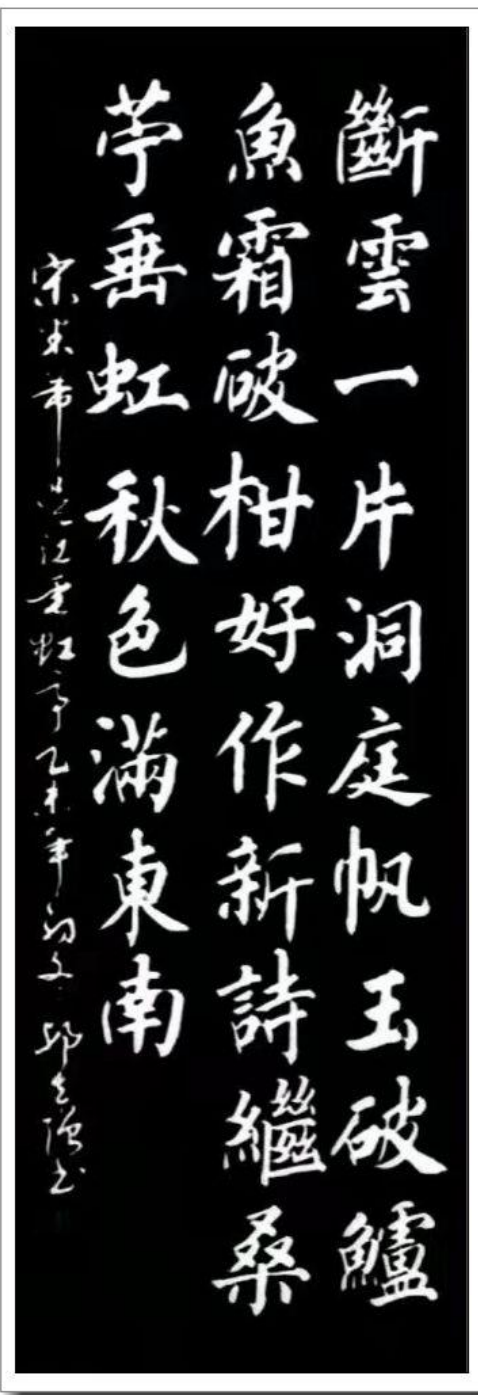 斷雲一片洞庭帆玉破鱸
魚霜破柑好作新詩繼桑
苧垂虹秋色滿東南
宋米芾吴江垂虹亭乙未年初冬书